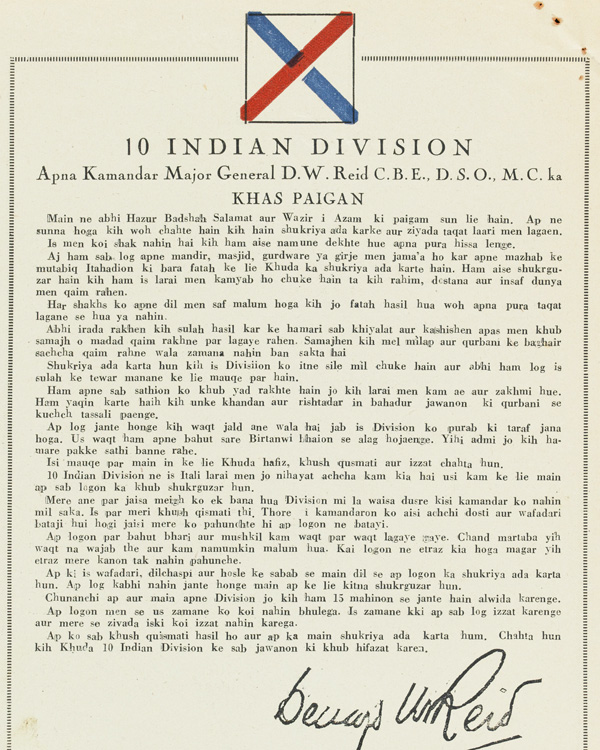 10 INDIAN DIVISION
Apna Kamandar Major General D.W. Reid C.B.E., D.S.O., M.C. ka
KHAS PAIGAN
Main ne abhi Hazur Badshah Salamat aur Wazir i Azam ki paigam sun lie hain. Ap ne
sunna hoga kih woh chahte hain kih hain shukriya ada karke aur ziyada taqat laari men lagaen.
Is men koi shak nahin hai kih ham aise namune dekhte hue apna pura hissa lenge.
Aj ham sab log apne mandir, masjid, gurdware ya girje men jama'a ho kar apne mazhab ke
mutabiq Itahadion ki bara fatah ke lie Khuda ka shukriya ada karte hain. Ham aise shukrgu-
zar hain kih ham is larai men kamyab ho chuke hain ta kih rahim, dostana aur insaf dunya
men qaim rahen.
Har shakhs ko apne dil men saf malum hoga kih jo fatah hasil hua woh apna pura taqat
lagane se hua ya nahin.
Abhi irada rakhen kih sulah hasil kar ke hamari sab khiyalat aur kashishen apas men khub
samajh o madad qaim rakhne par lagaye rahen. Samajhen kih mel milap aur qurbani ke baghair
sachcha qaim rahne wala zamana nahin ban sakta hai
Shukriya ada karta hun kih is Division ko itne sile mil chuke hain aur abhi ham log is
sulah ke tewar manane ke lie mauqe par hain.
Ham apne sab sathion ko khub yad rakhte hain jo kih larai men kam ae aur zakhmi hue.
Ham yaqin karte haih kih unke khandan aur rishtadar in bahadur jawanon ki qurbani se
kuchch tassali paenge.
Ap log jante honge kih waqt jald ane wala hai jab is Division ko purab ki taraf jana
hoga. Us waqt ham apne bahut sare Birtanwi bhaion se alag hojaenge. Yihi admi jo kih ha-
mare pakke sathi banne rahe.
Isi mauqe par main in ke lie Khuda hafiz, khush qusmati aur izzat chahta hun.
10 Indian Division ne is Itali larai men jo nihayat achcha kam kia hai usi kam ke lie main
ap sab logon ka khub shukrguzar hun.
Mere ane par jaisa meigh ko ek bana hua Division mi la waisa dusre kisi kamandar ko nahin
mil saka. Is par meri khush qismati thi. Thore i kamandaron ko aisi achchi dosti aur wafadari
bataji hui hogi jaisi mere ko pahunchte hi ap logon ne batayi.
Ap logon par bahut bhari aur mushkil kam waqt par waqt lagaye gaye. Chand martaba yih
waqt na wajab the aur kam namumkin malum hua. Kai logon ne etraz kia hoga magar yih
etraz mere kanon tak nahin pahunche.
Ap ki is wafadari, dilchaspi aur hosle ke sabab se main dil se ap logon ka shukriya ada karta
hun. Ap log kabhi nahin jante honge main ap ke lie kitna shukrguzar hun.
Chunanchi ap aur main apne Division jo kih ham 15 mahinon se jante hain alwida karenge.
Ap logon men se us zamane ko koi nahin bhulega. Is zamane kki ap sab log izzat karenge
aur mere se zivada iski koi izzat nahin karega.
Ap ko sab khush quismati hasil ho aur ap ka main shukriya ada karta hum. Chahta hun
kih Khuda 10 Indian Division ke sab jawanon ki khub hifazat karen.
Denys W Reid